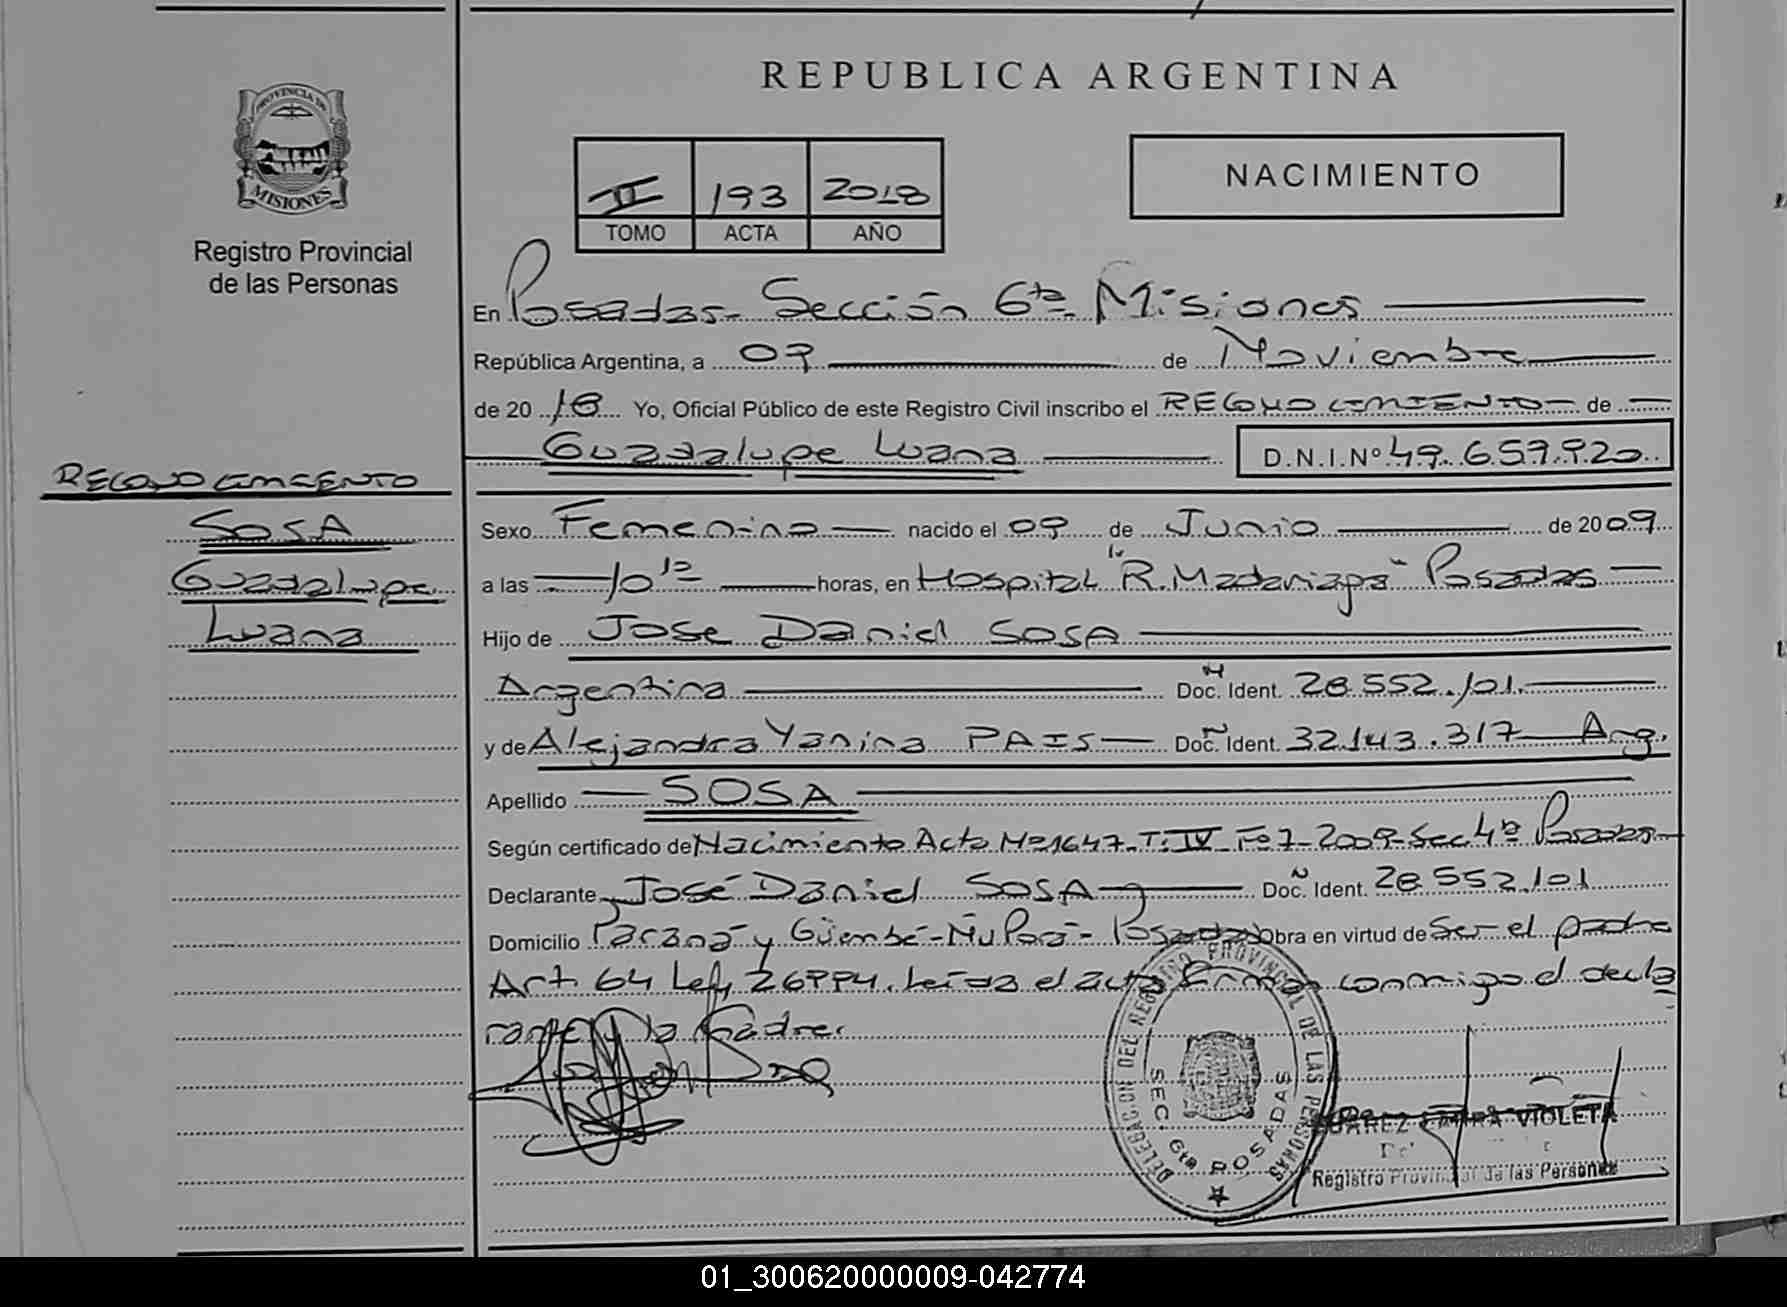 PROVINCIA DE
MISIONES
Registro Provincial
de las Personas
RECONOCIMIENTO
SOSA
Guadalupe
Luana
REPUBLICA ARGENTINA
II 193 2018
TOMO ACTA AÑO
NACIMIENTO
En Posadas- Sección 6ta- Misiones
República Argentina, a 09 de Noviembre
de 20 18 Yo, Oficial Público de este Registro Civil inscribo el RECONOCIMIENTO de
Guadalupe Luana D.N.I.Nº 49.659.920
Sexo Femenino nacido el 09 de Junio de 2009
a las 10 12 horas, en Hospital "R. Madariaga" Posadas
Hijo de Jose Daniel SOSA
Argentina Doc. Ident. 28.552.101
y de Alejandra Yanina PAIS Doc. Ident. 32.143.317 Arg.
Apellido SOSA
Según certificado de Nacimiento Acta Nº1647-T: IV Fº7-2009-Sec 4ª Posadas
Declarante José Daniel SOSA Doc. Ident. 28.552.101
Domicilio Paraná y Güembé-Ñu Porá- Posadas Obra en virtud de Ser el padre
Art 64 Ley 26994. Leída el acta firman conmigo el decla
rante y la madre.
DELEGACION DEL REGISTRO PROVINCIAL DE LAS PERSONAS
SEC. 6ta POSADAS
VIOLETA
Registro Provincial de las Personas
01_300620000009-042774